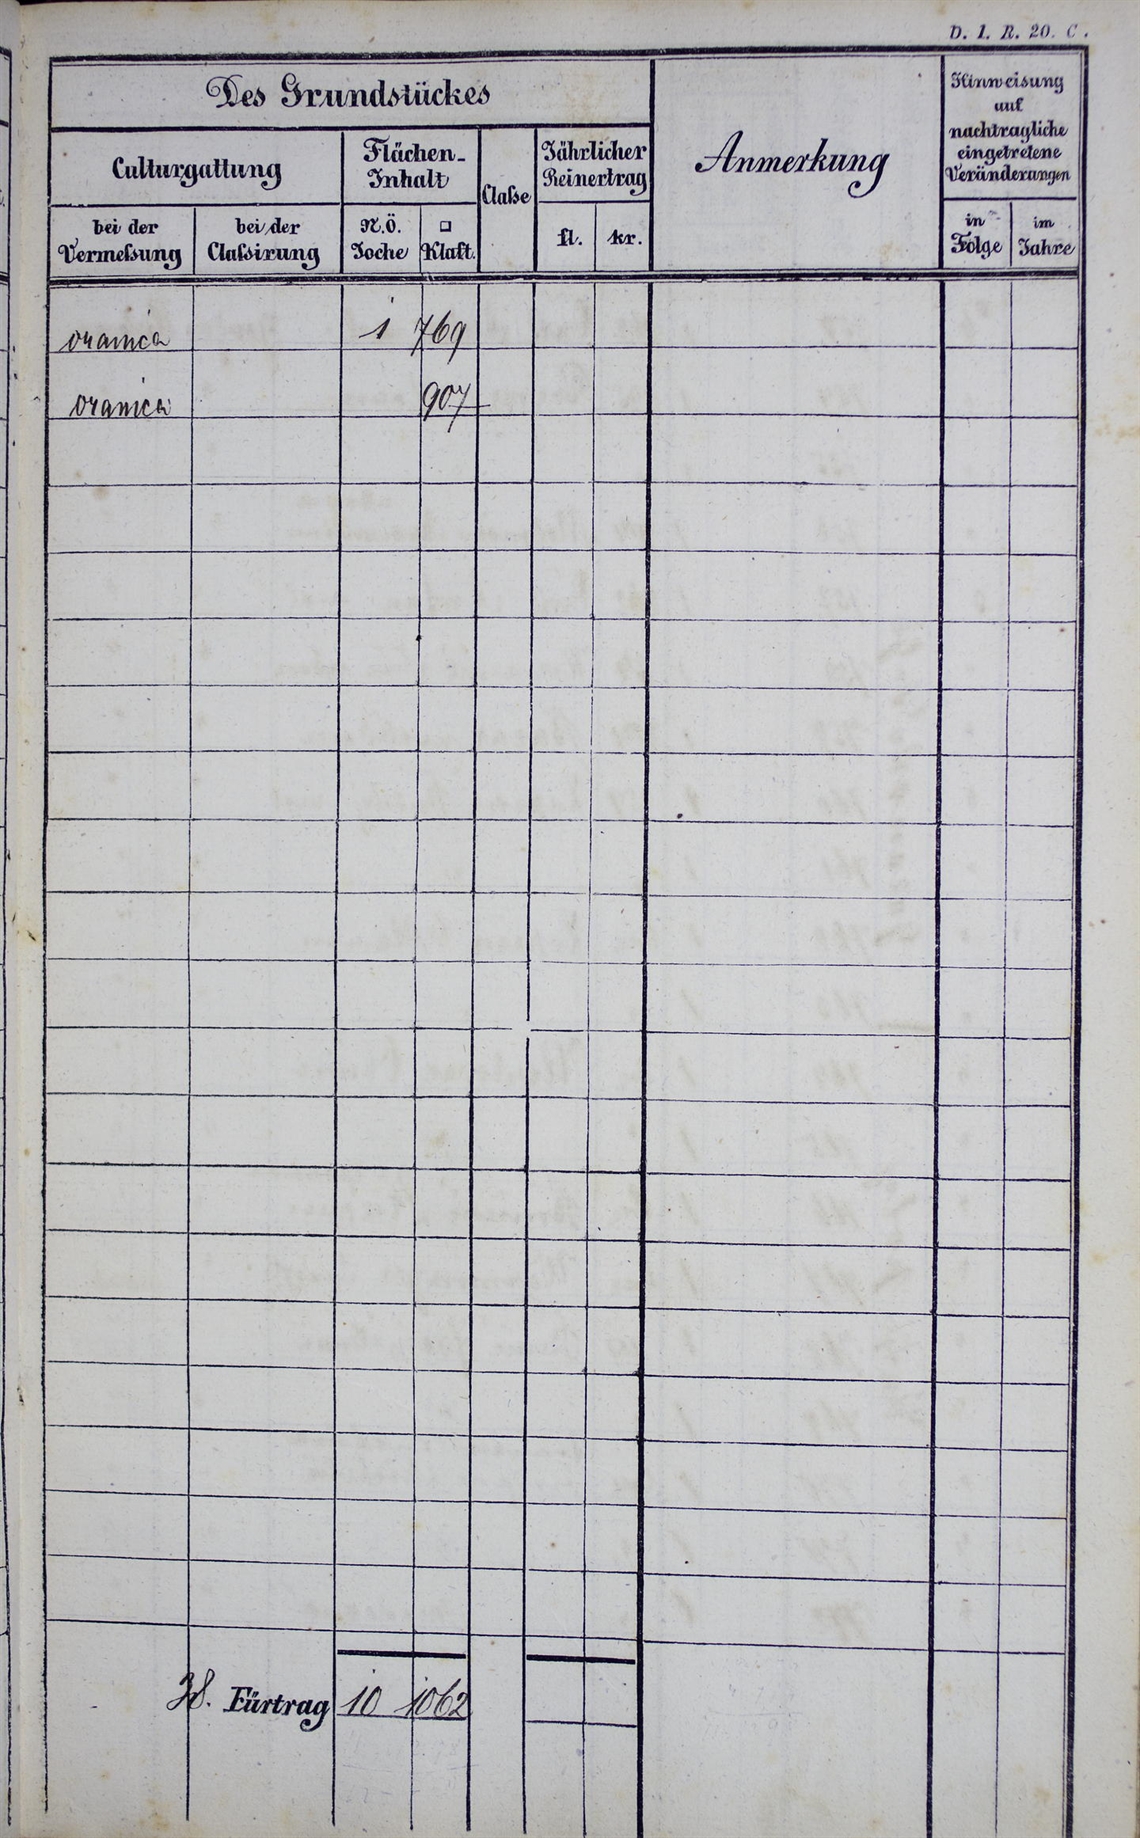 D. 1. R. 20. C.
Des Grundstückes
Culturgattung
Flächen-
Inhalt
Claße
Jährlicher
Reinertrag
Anmerkung
Hinweisung
auf
nachtragliche
eingetretene
Veränderungen
bei der
Vermeßung
bei der
Claßirung
N.Ö.
Joche
□
Klaft.
fl.
kr.
in
Folge
im
Jahre
oranica 1 769
oranica 907
38. Fürtrag 10 1062